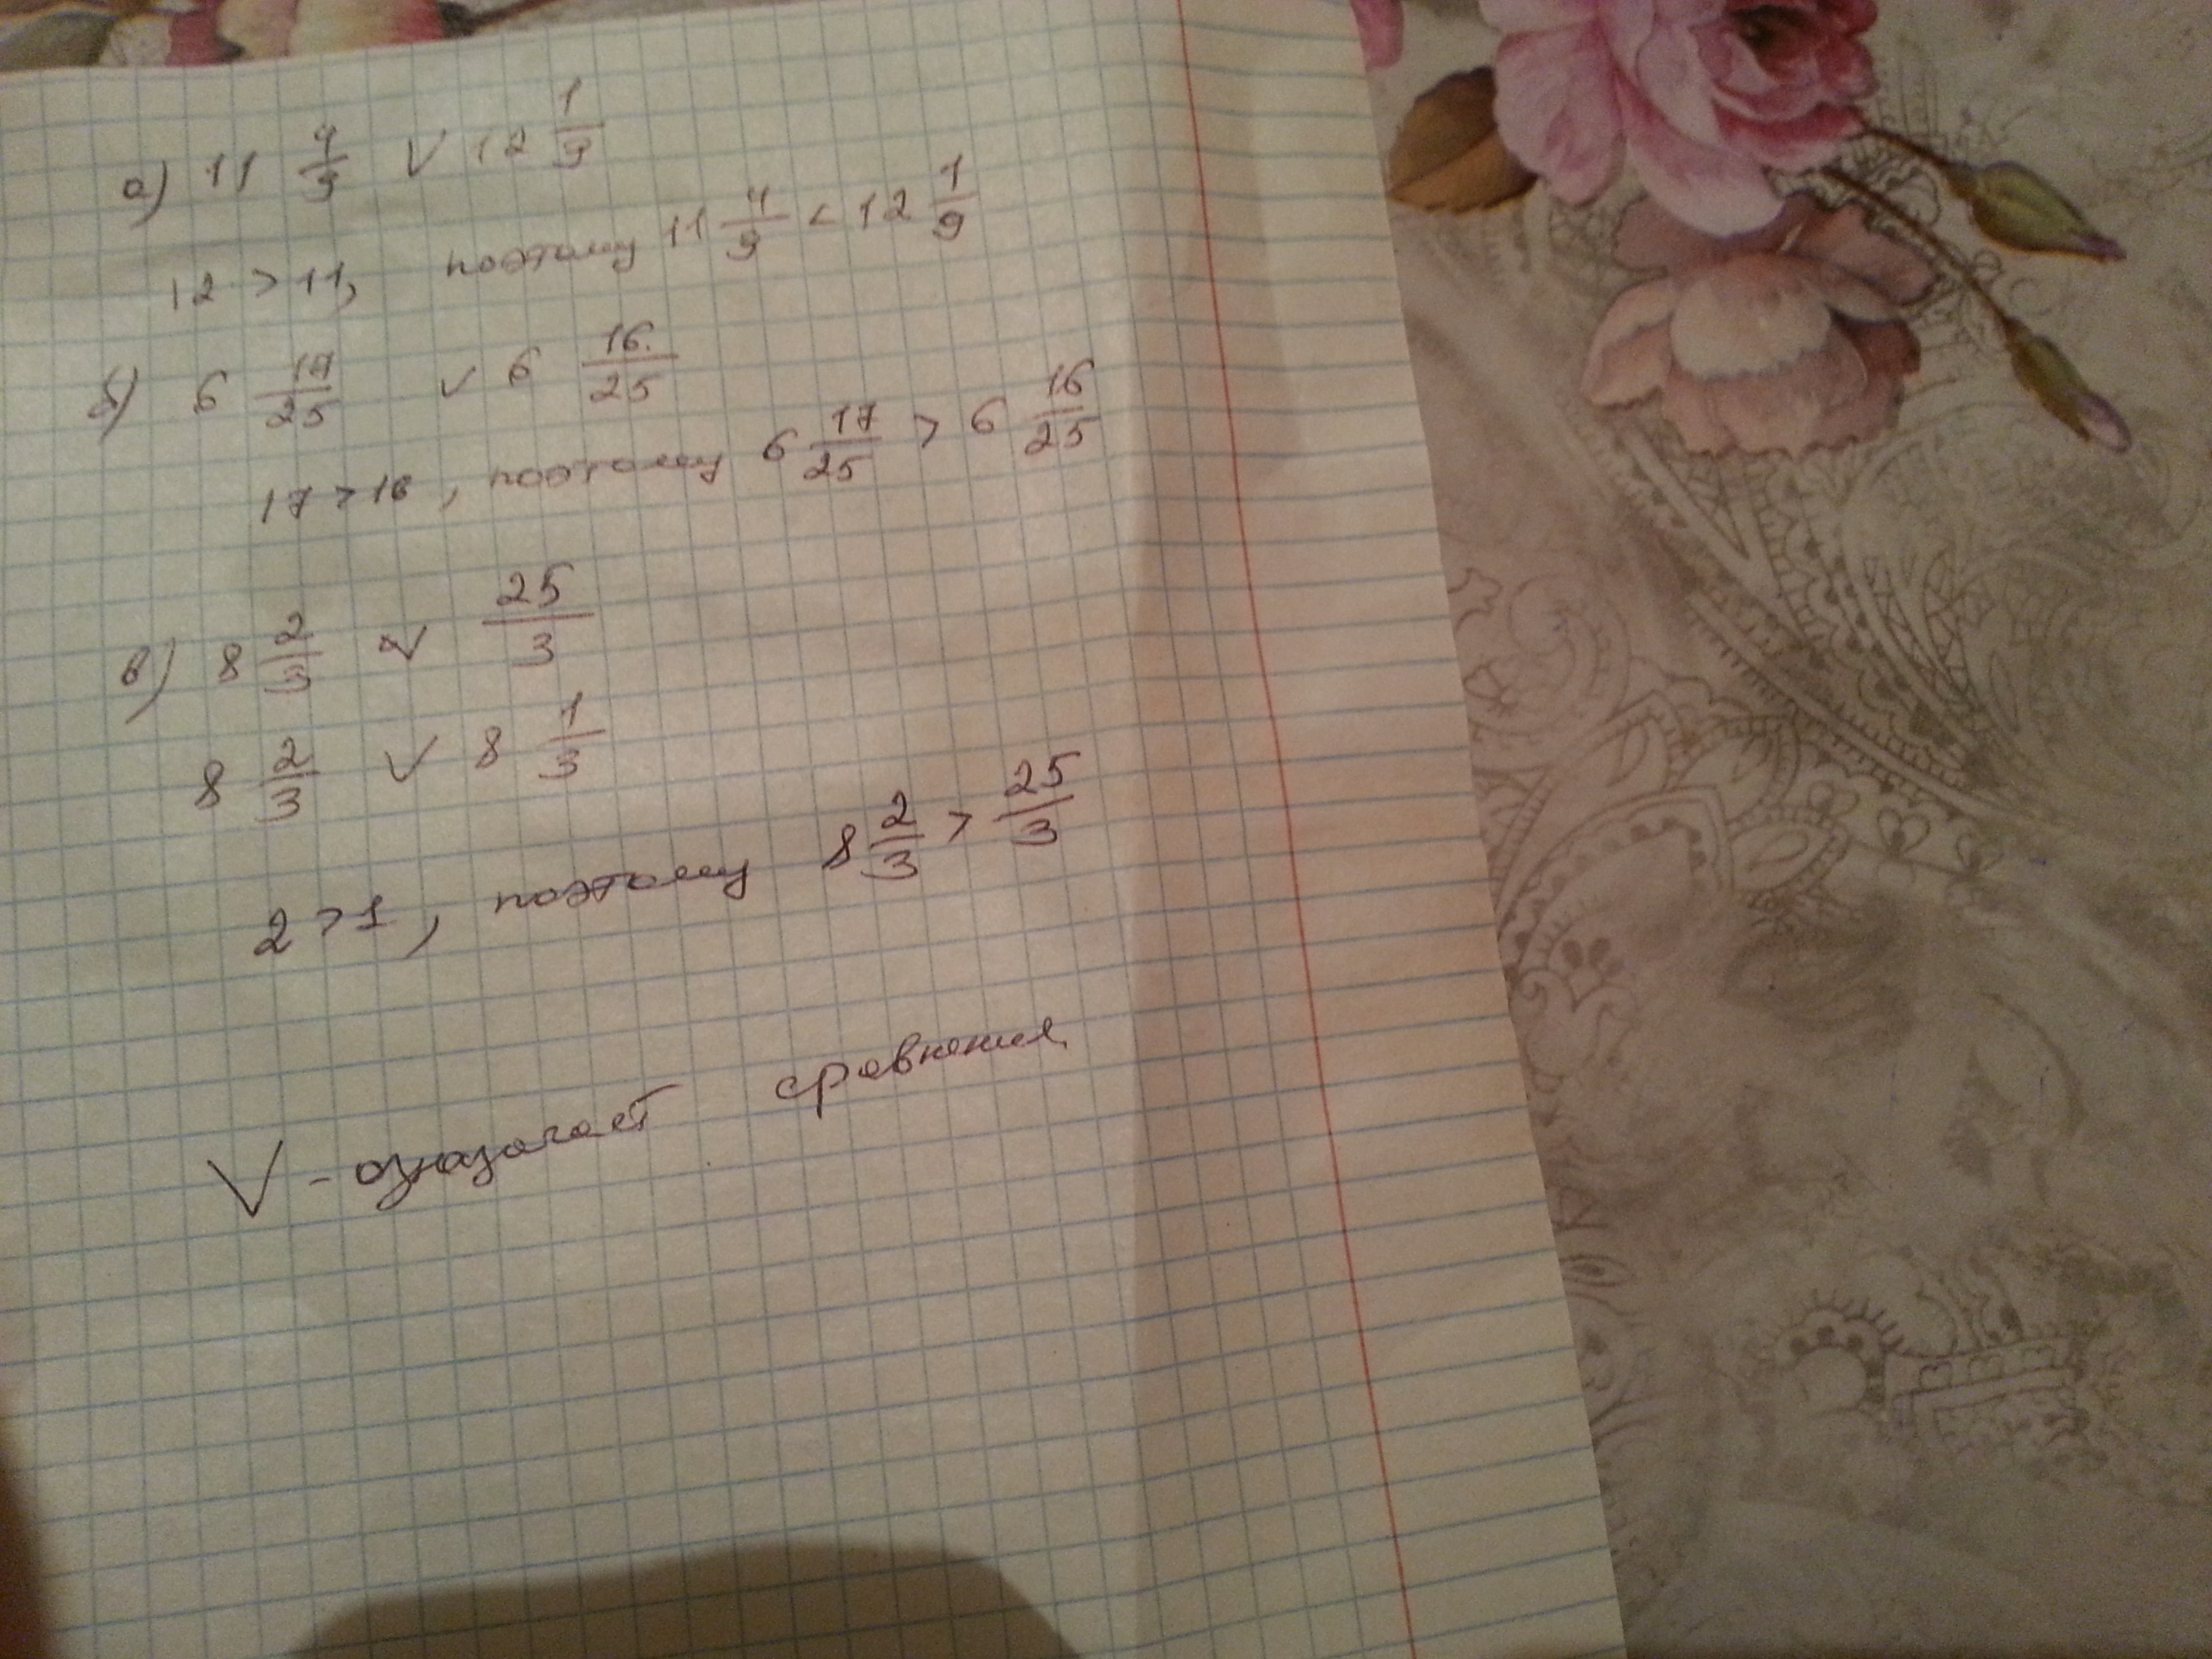 а) 11 4/9 V 12 1/9
12 > 11, поэтому 11 4/9 < 12 1/9
б) 6 17/25 V 6 16/25
17 > 16, поэтому 6 17/25 > 6 16/25
в) 8 2/3 V 25/3
8 2/3 V 8 1/3
2 > 1, поэтому 8 2/3 > 25/3
V - означает сравнения